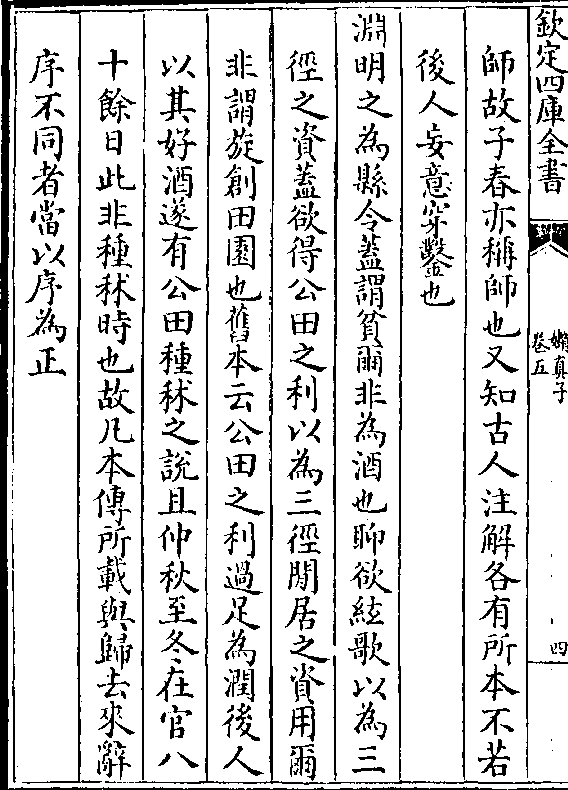 欽定四庫全書
嬾真子
卷五
四
師故子春亦稱師也又知古人注解各有所本不若
後人妄意穿鑿也
淵明之為縣令蓋謂貧爾非為酒也聊欲絃歌以為三
徑之資蓋欲得公田之利以為三徑閒居之資用爾
非謂旋創田園也舊本云公田之利過足為潤後人
以其好酒遂有公田種秫之說且仲秋至冬在官八
十餘日此非種秫時也故凡本傳所載與歸去來辭
序不同者當以序為正